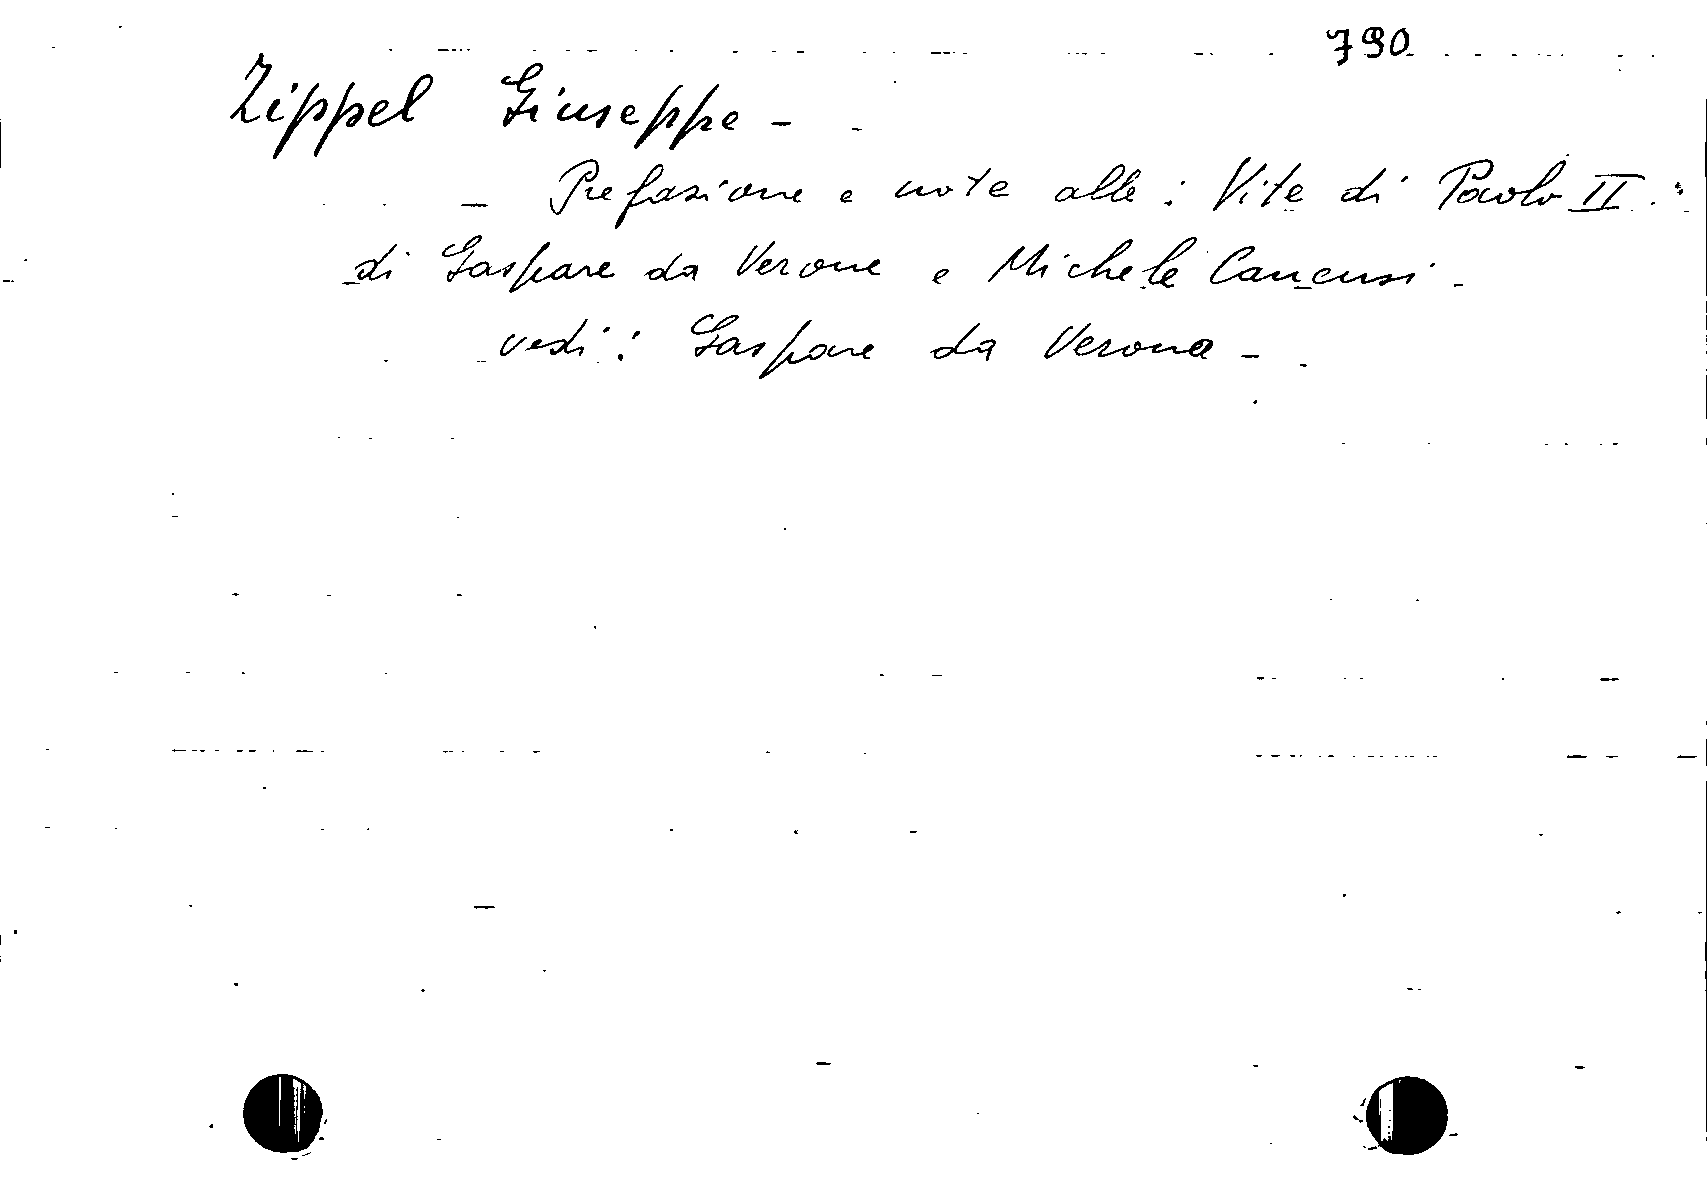 790
Zippel Giuseppe -
- Prefazione e note alle : Vite di Paolo II "
di Gaspare da Verona e Michele Canensi -
vedi : Gaspare da Verona -